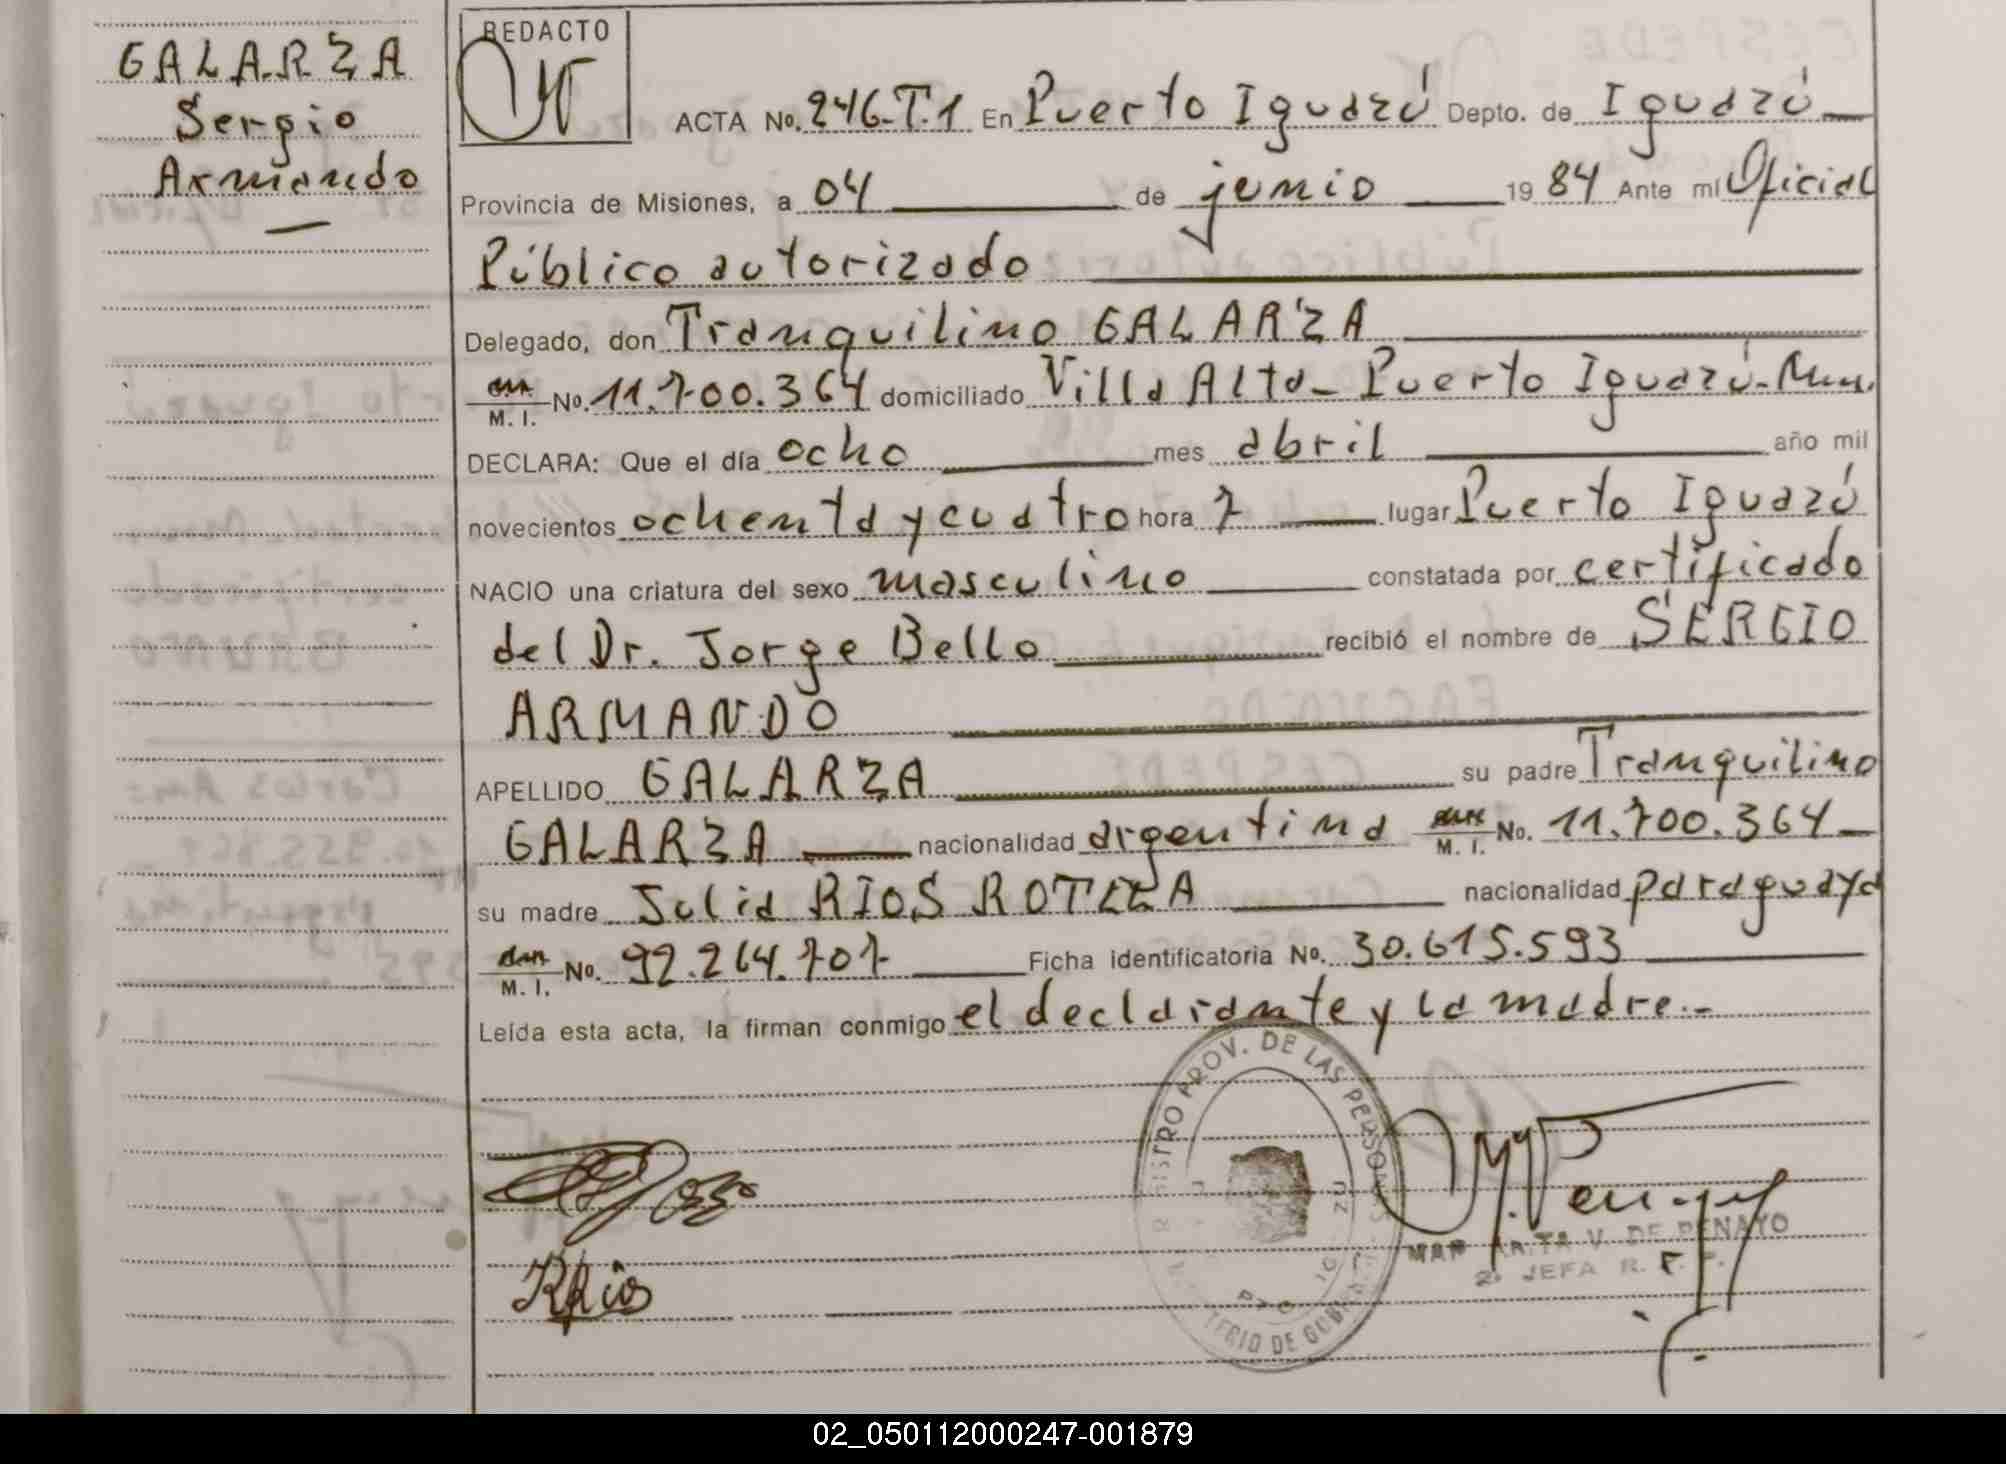 GALARZA
Sergio
Armando
REDACTO
ACTA No. 246-T.1 En Puerto Iguazú Depto. de Iguazú
Provincia de Misiones, a 04 de junio 1984 Ante mí Oficial
Público autorizado
Delegado, don Tranquilino GALARZA
M. I. No. 11.700.364 domiciliado Villa Alta - Puerto Iguazú - Mnes.
DECLARA: Que el día ocho mes abril año mil
novecientos ochenta y cuatro hora 7 lugar Puerto Iguazú
NACIO una criatura del sexo masculino constatada por certificado
del Dr. Jorge Bello recibió el nombre de SERGIO
ARMANDO
APELLIDO GALARZA su padre Tranquilino
GALARZA nacionalidad argentina M. I. No. 11.700.364
su madre Julia RIOS ROTELA nacionalidad paraguaya
M. I. No. 92.264.707 Ficha identificatoria No. 30.615.593
Leída esta acta, la firman conmigo el declarante y la madre.-
PROV. DE LAS PERSONAS
DE GOB
V. DE PENAYO
2º JEFA R.
02_050112000247-001879